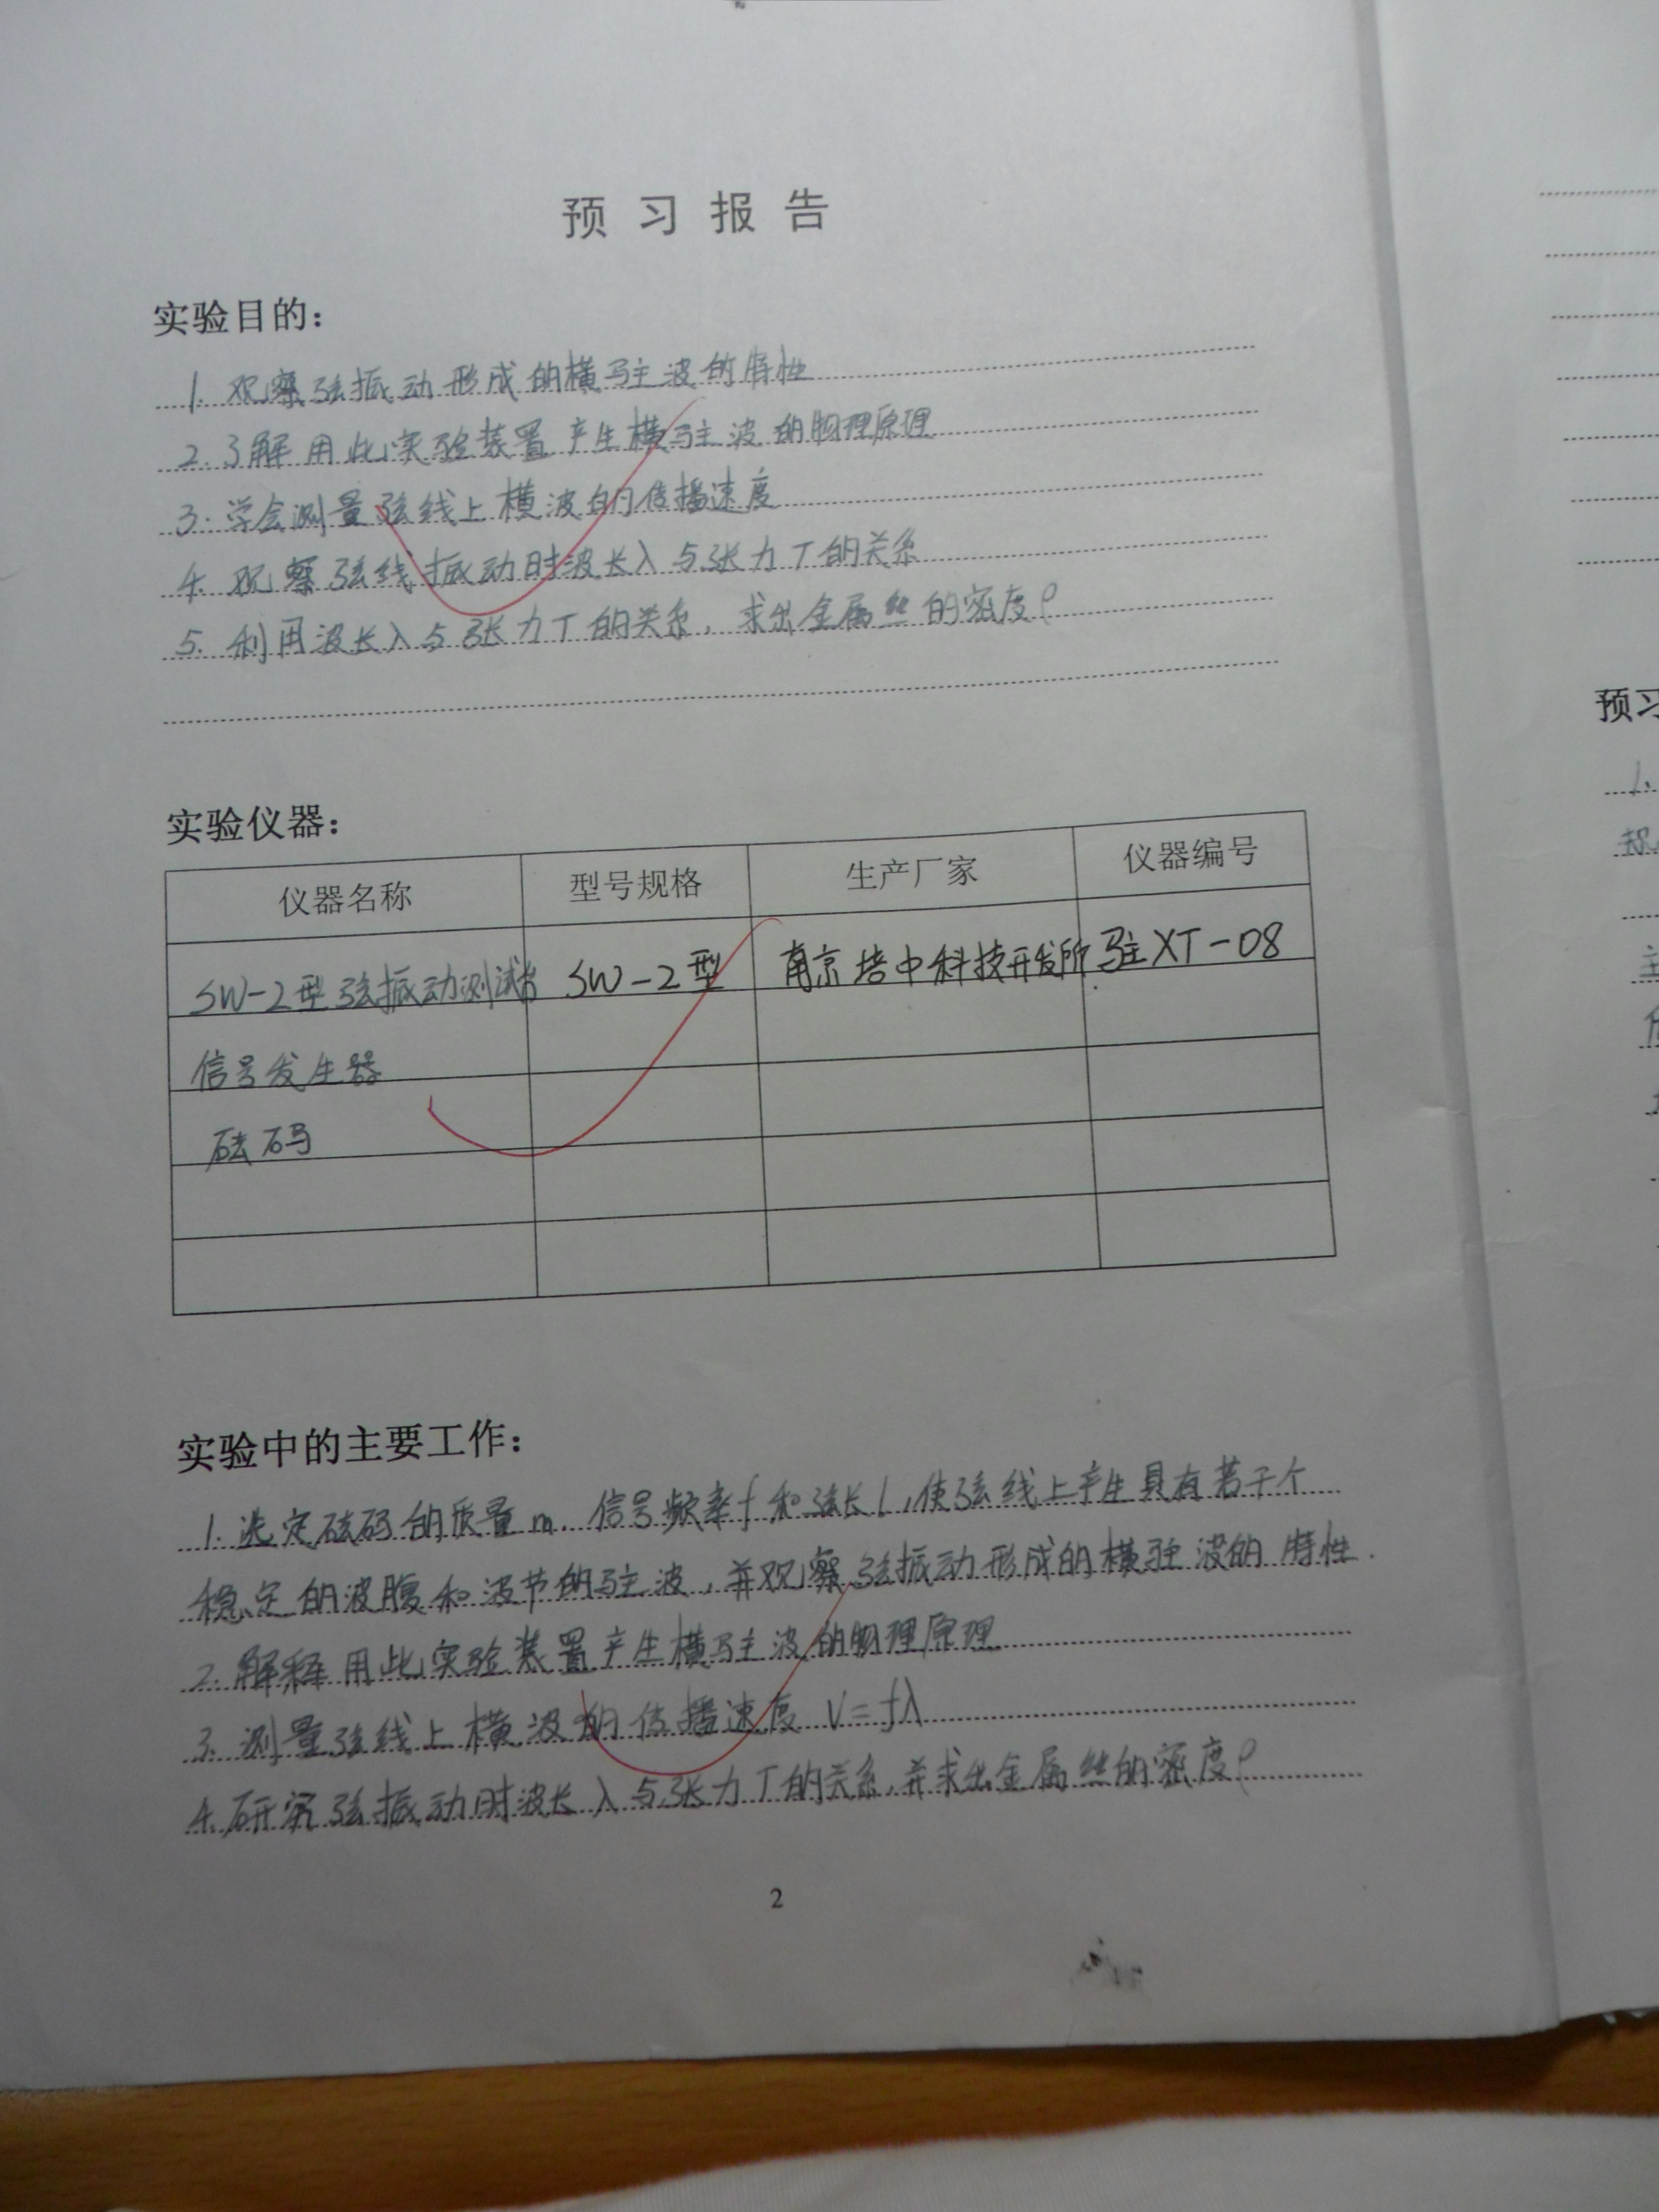 预习报告
实验目的：
1. 观察弦振动形成的横驻波的特性
2. 了解用此实验装置产生横驻波的物理原理
3. 学会测量弦线上横波的传播速度
4. 观察弦线振动时波长λ与张力T的关系
5. 利用波长λ与张力T的关系，求出金属丝的密度ρ
实验仪器：
仪器名称 型号规格 生产厂家 仪器编号
SW-2型弦振动测试台 SW-2型 南京培中科技开发所 驻XT-08
信号发生器
砝码
实验中的主要工作：
1. 选定砝码的质量m、信号频率f和弦长l，使弦线上产生具有若干个
稳定的波腹和波节的驻波，并观察弦振动形成的横驻波的特性.
2. 解释用此实验装置产生横驻波的物理原理
3. 测量弦线上横波的传播速度 V=fλ
4. 研究弦振动时波长λ与张力T的关系，并求出金属丝的密度ρ
2
预习
1.